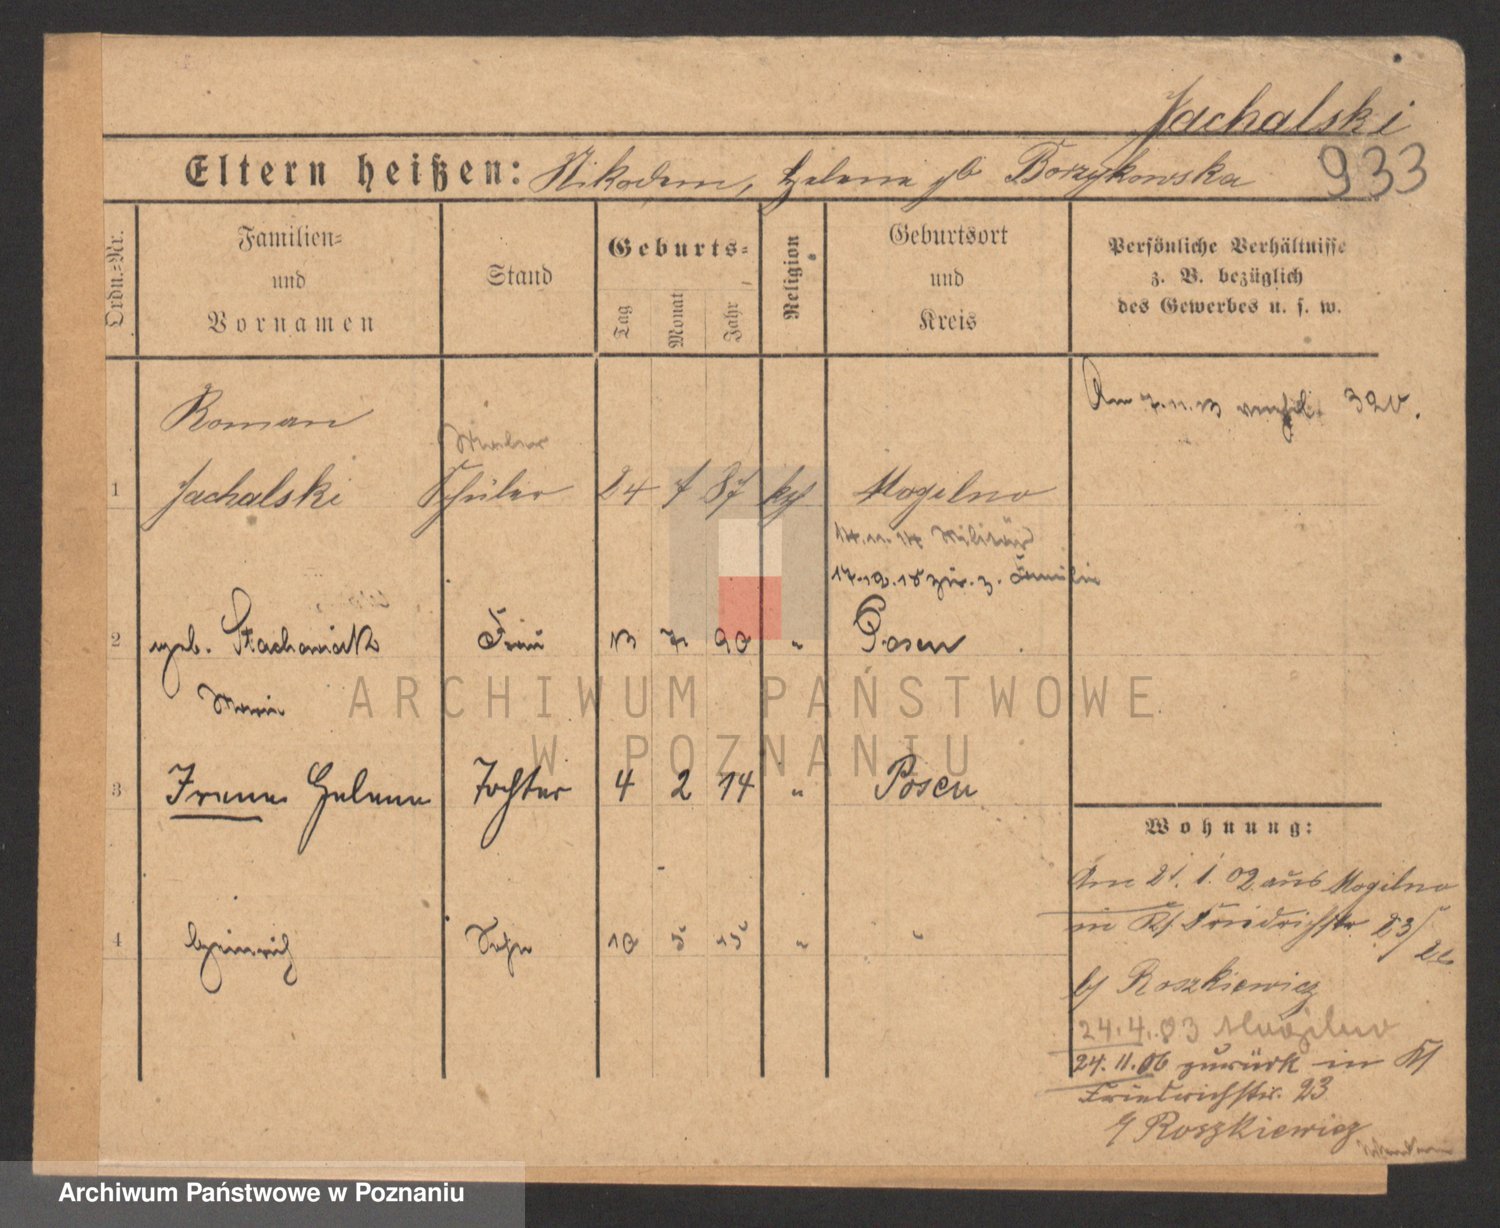 Jachalski
Eltern heißen: Nikodem, Helene gb Borzykowska 933
Ordn.=Nr.
Familien=
und
Vornamen
Stand
Geburts=
Tag
Monat
Jahr
Religion
Geburtsort
und
Kreis
Persönliche Verhältnisse
z. B. bezüglich
des Gewerbes u. s. w.
Am 7.11.13 320.
Roman
1 Jachalski Schüler 24 7 87 kth Mogilno
14.11.14 Militär
17.12.18 zur. z. Familie
2 geb. Stachowiak Frau 13 7 90 " Posen
Marie
3 Irene Helene Tochter 4 2 14 " Posen
4 Heinrich Sohn 10 5 15 " "
Wohnung:
Am 21.1.02 aus Mogilno
in Friedrichstr. 23/
b/ Roszkiewicz
24.4.03 Mogilno
24.11.06 zurück in
Friedrichstr. 23
b/ Roszkiewicz
ARCHIWUM PAŃSTWOWE
W POZNANIU
Archiwum Państwowe w Poznaniu